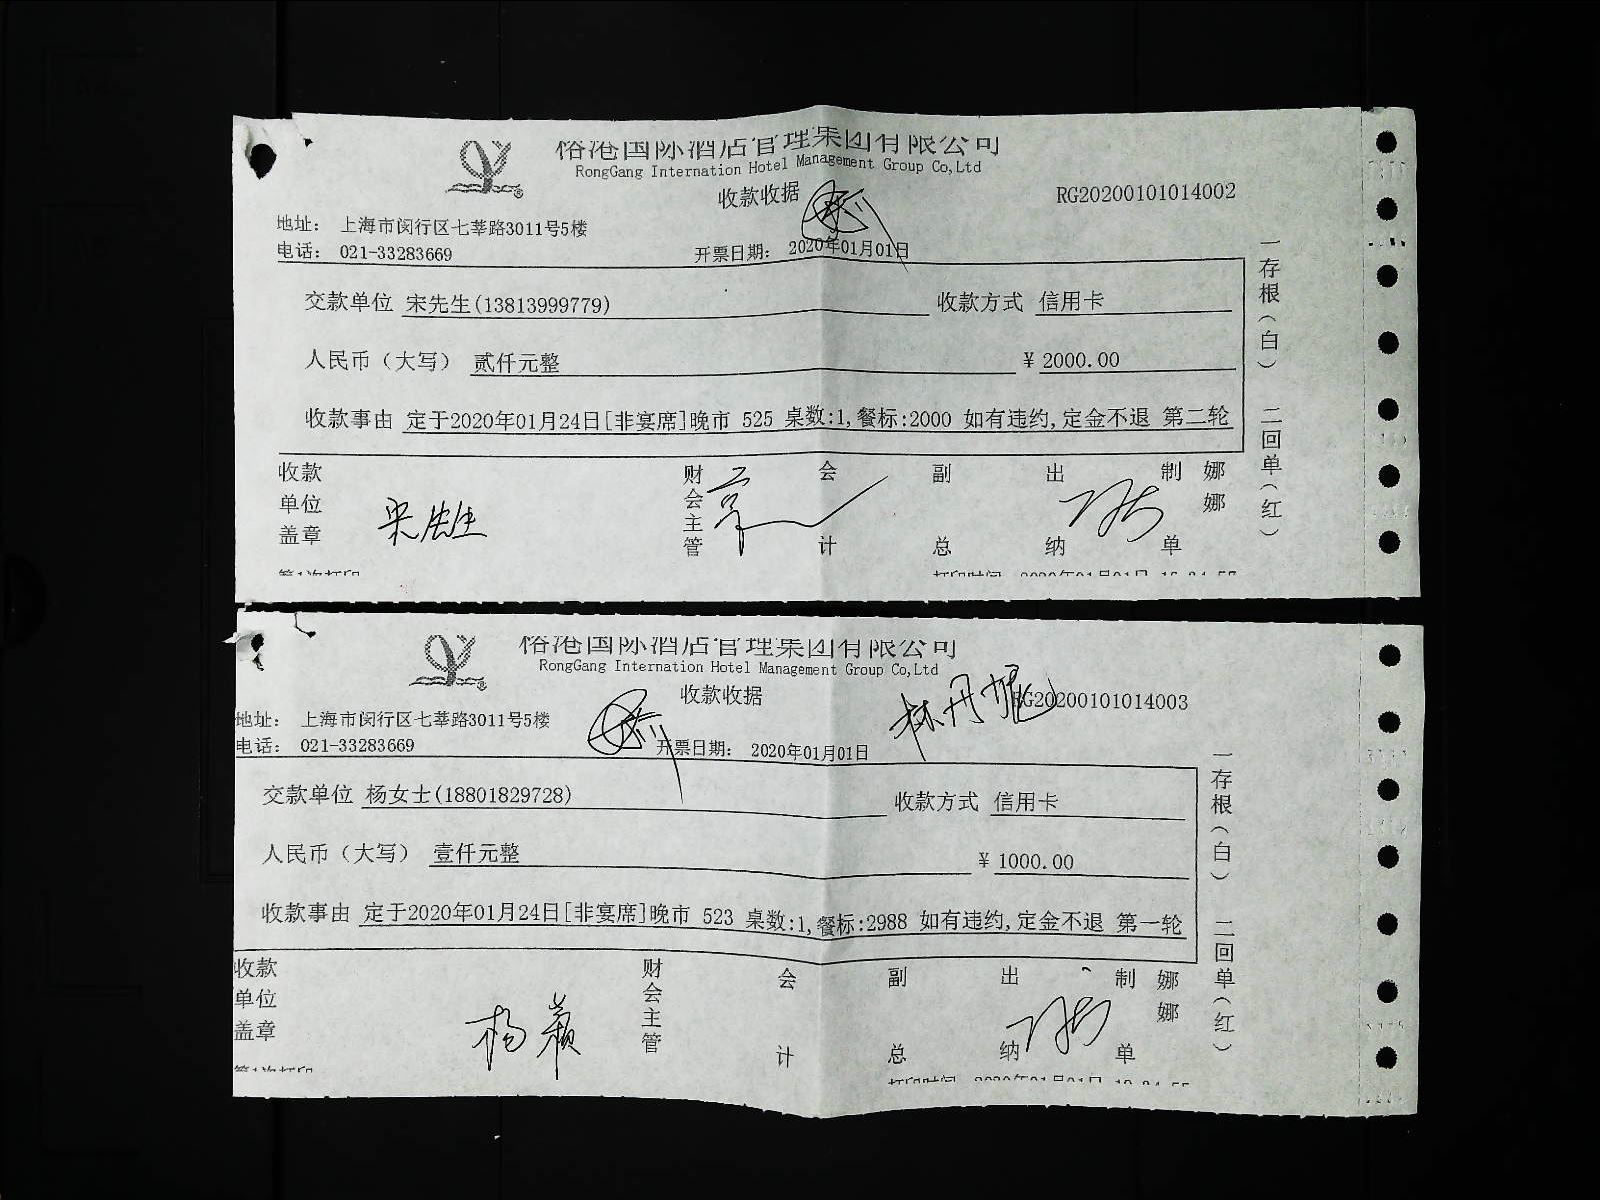 裕港国际酒店管理集团有限公司
RongGang Internation Hotel Management Group Co,Ltd
收款收据
RG20200101014002
地址： 上海市闵行区七莘路3011号5楼
电话： 021-33283669 开票日期： 2020年01月01日
交款单位 宋先生(13813999779) 收款方式 信用卡
人民币（大写） 贰仟元整 ￥2000.00
收款事由 定于2020年01月24日[非宴席]晚市 525 桌数:1,餐标:2000 如有违约,定金不退 第二轮
收款单位盖章 宋先生 财会主管 会计 副总 出纳 制单 娜娜
一存根（白） 二回单（红）
第1次打印
裕港国际酒店管理集团有限公司
RongGang Internation Hotel Management Group Co,Ltd
收款收据
RG20200101014003
地址： 上海市闵行区七莘路3011号5楼
电话： 021-33283669 开票日期： 2020年01月01日
交款单位 杨女士(18801829728) 收款方式 信用卡
人民币（大写） 壹仟元整 ￥1000.00
收款事由 定于2020年01月24日[非宴席]晚市 523 桌数:1,餐标:2988 如有违约,定金不退 第一轮
收款单位盖章 财会主管 会计 副总 出纳 制单 娜娜
一存根（白） 二回单（红）
第1次打印